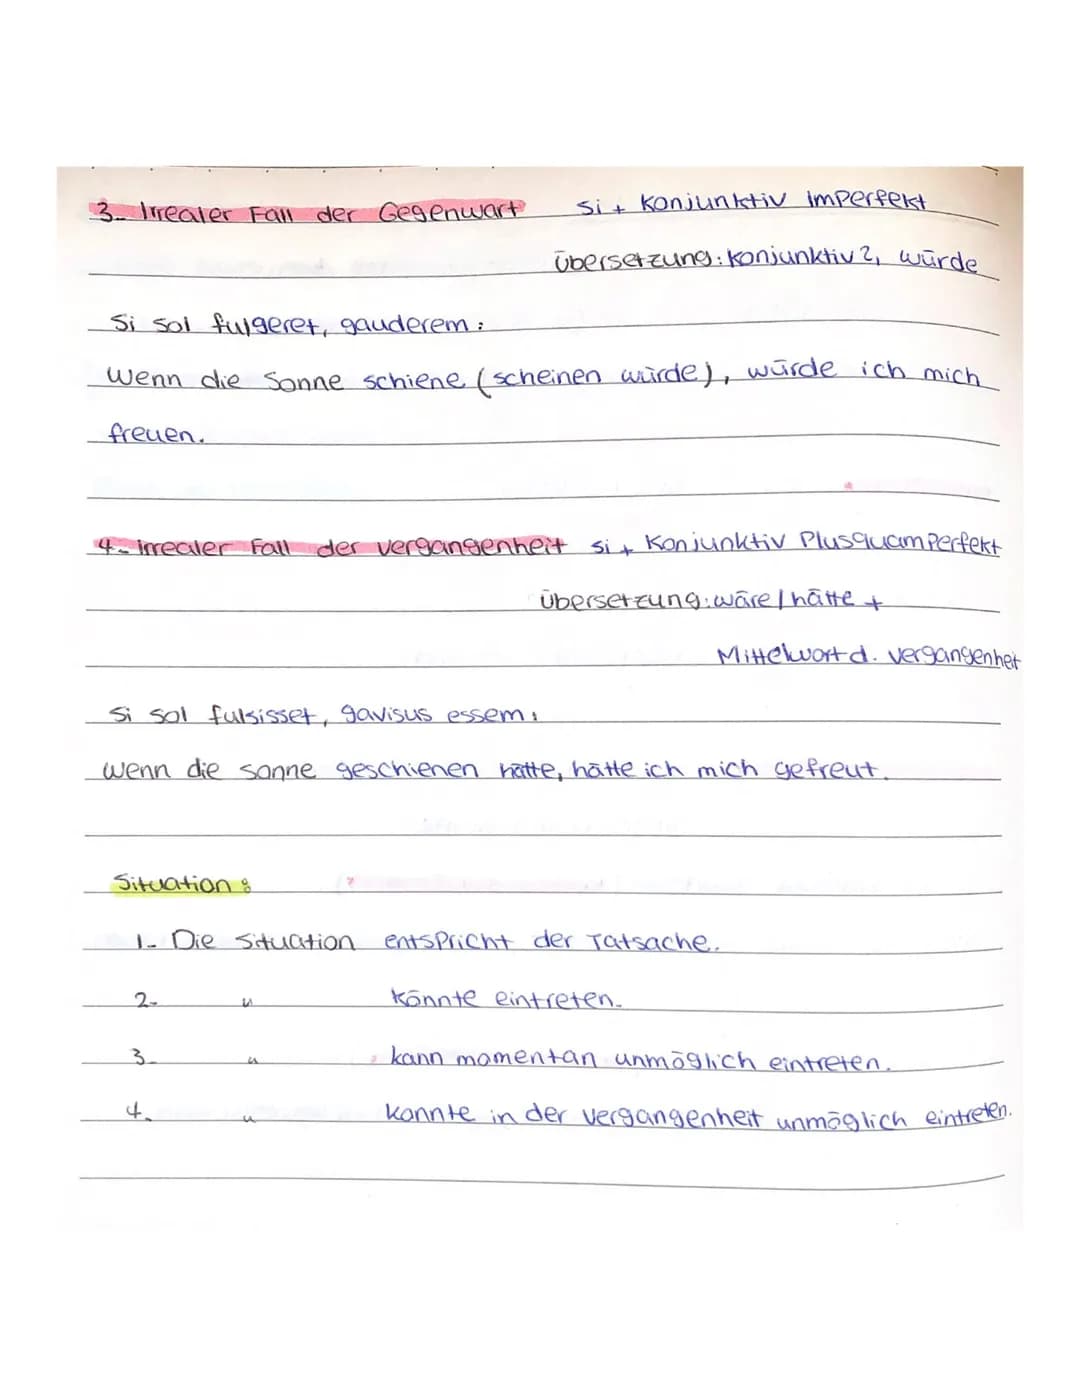 3- Irrealer Fall der Gegenwart si + Konjunktiv Imperfekt
Übersetzung: Konjunktiv 2, würde
Si sol fulgeret, gauderem:
Wenn die Sonne schiene (scheinen würde), würde ich mich
freuen.
4- irrealer Fall der Vergangenheit si + Konjunktiv Plusquamperfekt
Übersetzung: wäre / hätte +
Mittelwort d. Vergangenheit
Si sol fulsisset, gavisus essem:
wenn die Sonne geschienen hätte, hätte ich mich gefreut.
Situation:
1- Die Situation entspricht der Tatsache.
2- " könnte eintreten.
3- " kann momentan unmöglich eintreten.
4. " konnte in der Vergangenheit unmöglich eintreten.